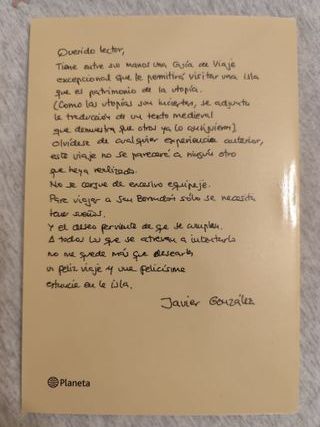 Querido lector,
Tiene entre sus manos una Guía de Viaje
excepcional que le permitirá visitar una isla
que es patrimonio de la utopía.
(Como las utopías son inciertas, se adjunta
la traducción de un texto medieval
que demuestra que otros ya lo consiguieron)
Olvídese de cualquier experiencia anterior,
este viaje no se parecerá a ningún otro
que haya realizado.
No se cargue de excesivo equipaje.
Para viajar a San Borondón sólo se necesita
tener sueños.
Y el deseo ferviente de que se cumplan.
A todos los que se atrevan a intentarlo
no me queda más que desearles
un feliz viaje y una felicísima
estancia en la isla.
Javier González
Planeta